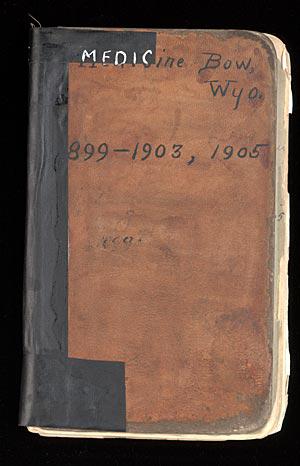 MEDIC
ine Bow,
Wyo.
899-1903, 1905